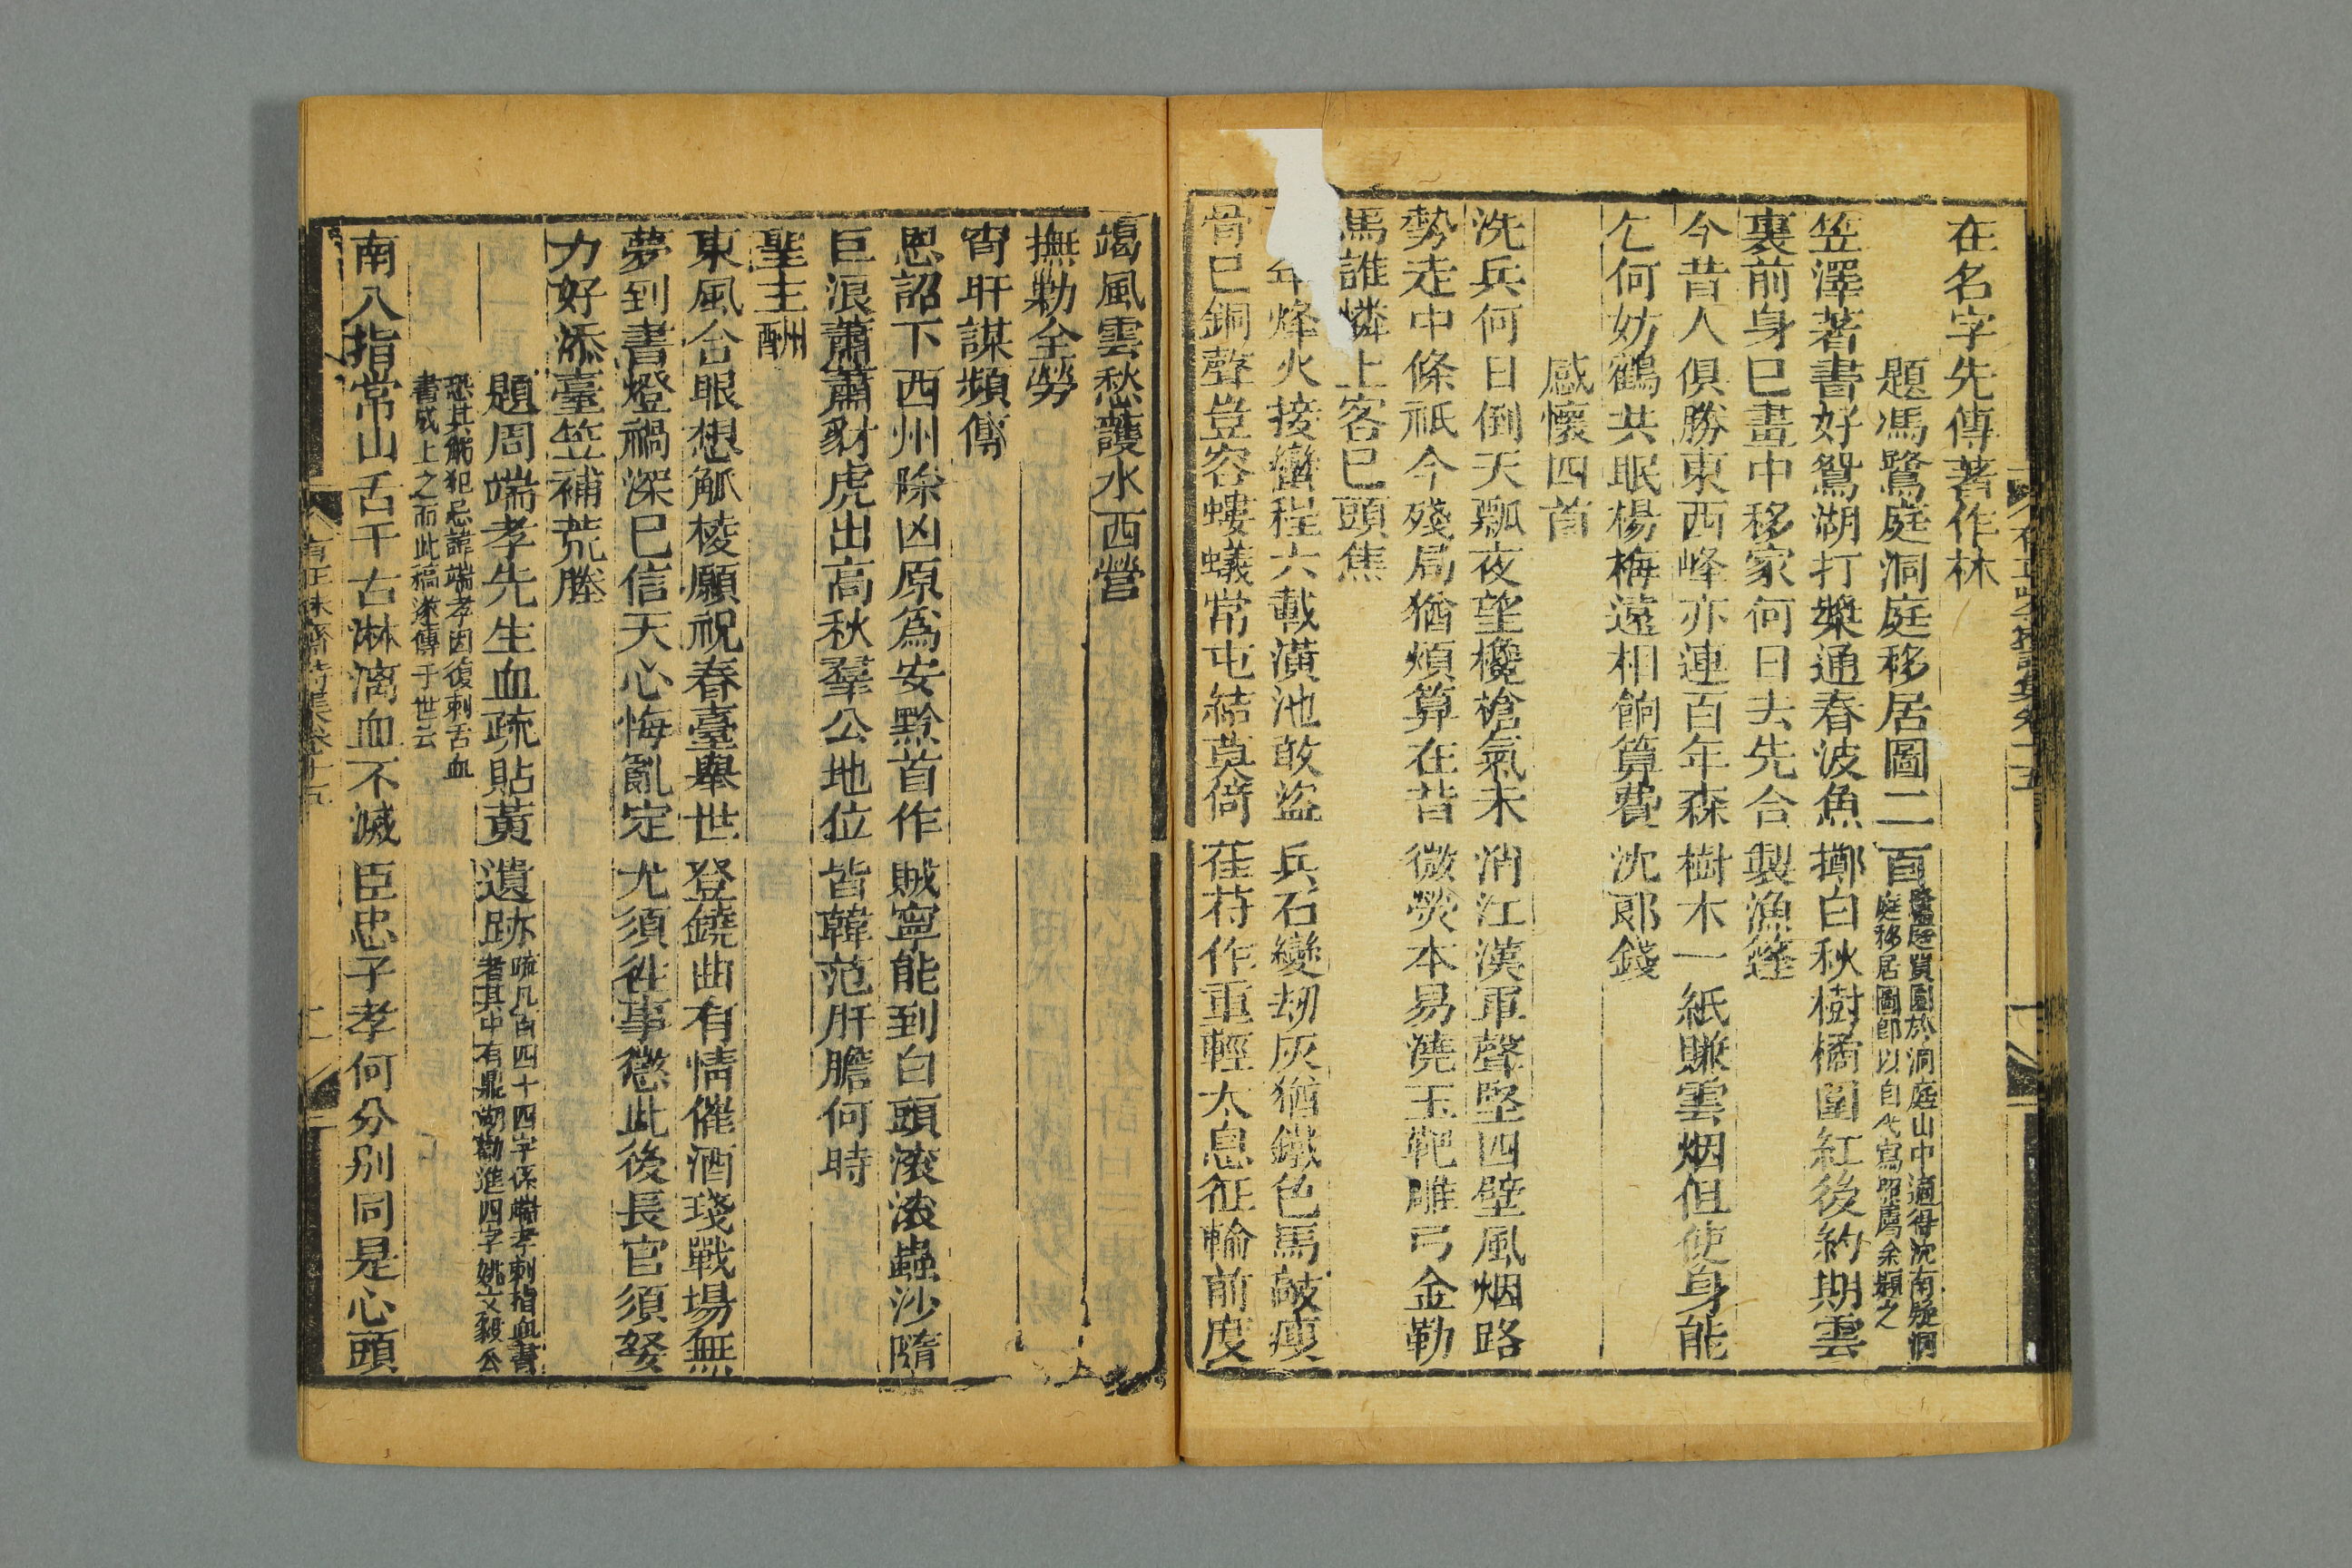 在名字先傳著作林
題馮鷺庭洞庭移居圖二首鷺庭買園於洞庭山中適得沈南疑洞
庭移居圖卽以自代寫照屬余題之
笠澤著書好鴛湖打槳通春波魚擲白秋樹橘圍紅後約期雲
裏前身已畫中移家何日去先合製漁篷
今昔人俱勝東西峰亦連百年森樹木一紙賺雲烟但使身能
乞何妨鶴共眠楊梅遠相餉算費沈郞錢
感懷四首
洗兵何日倒天瓢夜望欃槍氣未消江漢軍聲堅四壁風烟路
勢走中條祇今殘局猶煩算在昔微熒本易澆玉靶雕弓金勒
馬誰憐上客已頭焦
年烽火接蠻程六載潢池敢盜兵石變刼灰猶鐵色馬敲瘦
骨已銅聲豈容螻蟻常屯結莫倚萑苻作重輕太息征輪前度
竭風雲愁護水西營
撫勦全勞
宵旰謀頻傳
恩詔下西州除凶原爲安黔首作賊寧能到白頭滾滾蟲沙隨
巨浪蕭蕭豺虎出高秋羣公地位皆韓范肝膽何時
聖主酬
東風合眼想觚棱願祝春臺舉世登鐃曲有情催酒琖戰場無
夢到書燈禍深已信天心悔亂定尤須徃事懲此後長官須努
力好添臺笠補荒塍
題周端孝先生血疏貼黃遺跡疏凡百四十四字係端孝刺指血書
者其中有鼎湖勸進四字姚文毅公
恐其觸犯忌諱端孝因復刺舌血
書成上之而此稿遂傳于世云
南八指常山舌千古淋漓血不滅臣忠子孝何分别同是心頭
有正味齋詩集卷十五